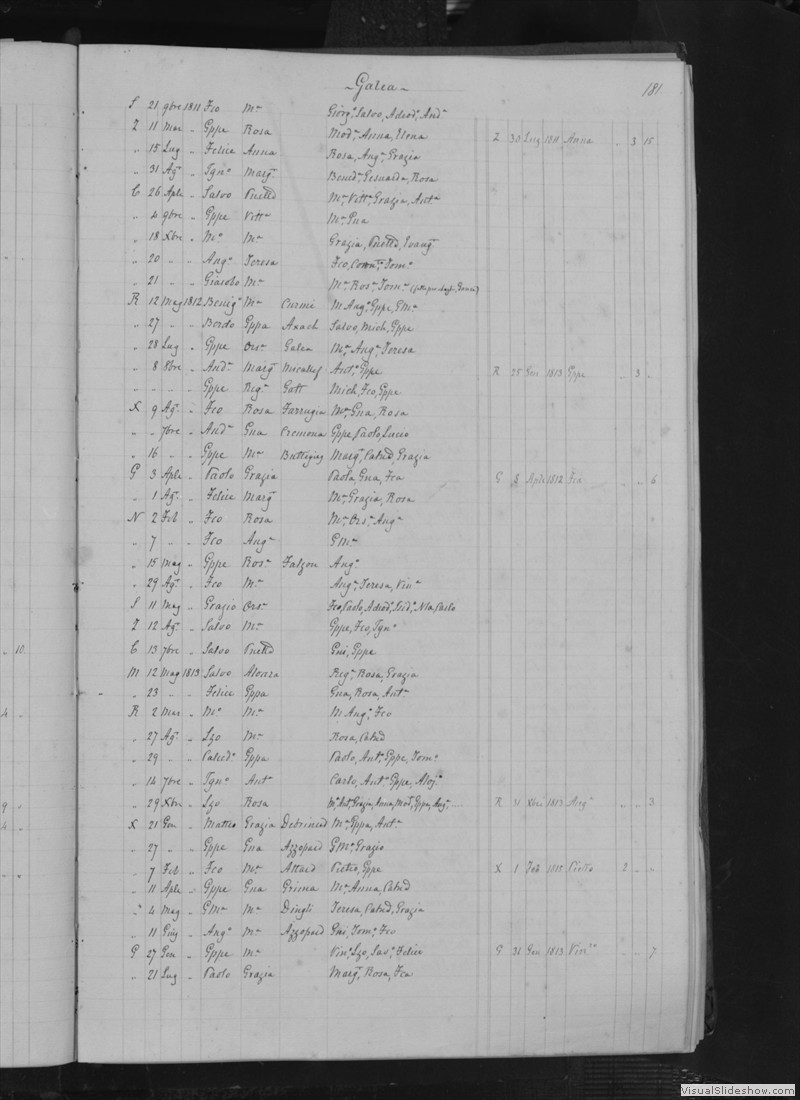 Galea
181.
S 21 9bre 1811 Fco Mª Giorgº, Salvo, Adeodº, Andª
Z 11 Mar „ Gppe Rosa Modª, Anna, Elena Z 30 Lug 1811 Anna „ 3 15
„ 15 Lug „ Felice Anna Rosa, Angª, Grazia
„ 31 Agº „ Ignº Margª Bened, Gesualda, Rosa
C 26 Aple „ Salvo Mª, Vittª, Grazia, Antª
„ 4 9bre „ Gppe Vittª Mª, Gna
„ 18 Xbre „ Mº Mª Grazia,
„ 20 „ „ Angº Teresa Fco, Tomº
„ 21 „ „ Giacobo Mª Mª, Rosª, Tomª
R 12 Mag 1812 Benigº Mª Curmi M Angº, Gppe, GMª
„ 27 „ „ Gppa Axach Salvo, Mich, Gppe
„ 28 Lug „ Gppe Orsª Galea Mª, Angª, Teresa
„ 8 8bre „ Andª Margª Micallef Antª, Gppe R 25 Gen 1813 Gppe „ 3 „
„ „ „ „ Gppe Regª Gatt Mich, Fco, Gppe
X 9 Agº „ Fco Rosa Farrugia Mª, Gna, Rosa
„ „ 7bre „ Andª Gna Cremona Gppe, Paolo, Lucio
„ 16 „ „ Gppe Mª Buttigieg Margª, Catnd, Grazia
G 3 Aple „ Paolo Grazia Paola, Gna, Fca G 8 Aple 1812 Fca „ „ 6
„ 1 Agº „ Felice Margª Mª, Grazia, Rosa
N 2 Feb „ Fco Rosa Mª, Orsª, Angª
„ 7 „ „ Fco Angª GMª
„ 15 Mag „ Gppe Rosª Falzon Angª
„ 29 Agº „ Fco Mª Angª, Teresa, Vinª
S 11 Mag „ Grazio Orsª Fco, Paolo, Adeodº, Isidº, Nla, Carlo
Z 12 Agº „ Salvo Mª Gppe, Fco, Ignº
C 13 7bre „ Salvo Gni, Gppe
M 12 Mag 1813 Salvo Alonza Regª, Rosa, Grazia
„ 23 „ „ Felice Gppa Gna, Rosa, Antª
R 2 Mar „ Mº Mª M Angº, Fco
„ 27 Agº „ Lzo Mª Rosa, Catnd
„ 29 „ „ Calcedº Gppa Paolo, Antª, Gppe, Tomº
„ 14 7bre „ Ignº Antª Carlo, Antº, Gppe, Alojº
„ 29 Xbre „ Lzo Rosa Mª, Antª, Grazia, Anna, Modª, Gppa, Angª, .... R 31 Xbre 1813 Angª „ „ 3
X 21 Gen „ Matteo Grazia Debrincat Mª, Gppa, Antª
„ 27 „ „ Gppe Gna Azzopard GMª, Grazio
„ 7 Feb „ Fco Mª Attard Pietro, Gppa X 1 Feb Pietro 2 „ „
„ 11 Aple „ Gppe Gna Griena Mª, Anna, Catnd
„ 4 Mag „ GMª Mª Dingli Teresa, Catnd, Grazia
„ 11 Giug „ Angº Mª Azzopard Gni, Tomº, Fco
G 27 Gen „ Gppe Mª Vinº, Lzo, Savº, Felice G 31 Gen 1813 Vinº „ „ 7
„ 21 Lug „ Paolo Grazia Margª, Rosa, Fca
„ 10.
4 „
9 „
4 „
VisualSlideshow.com